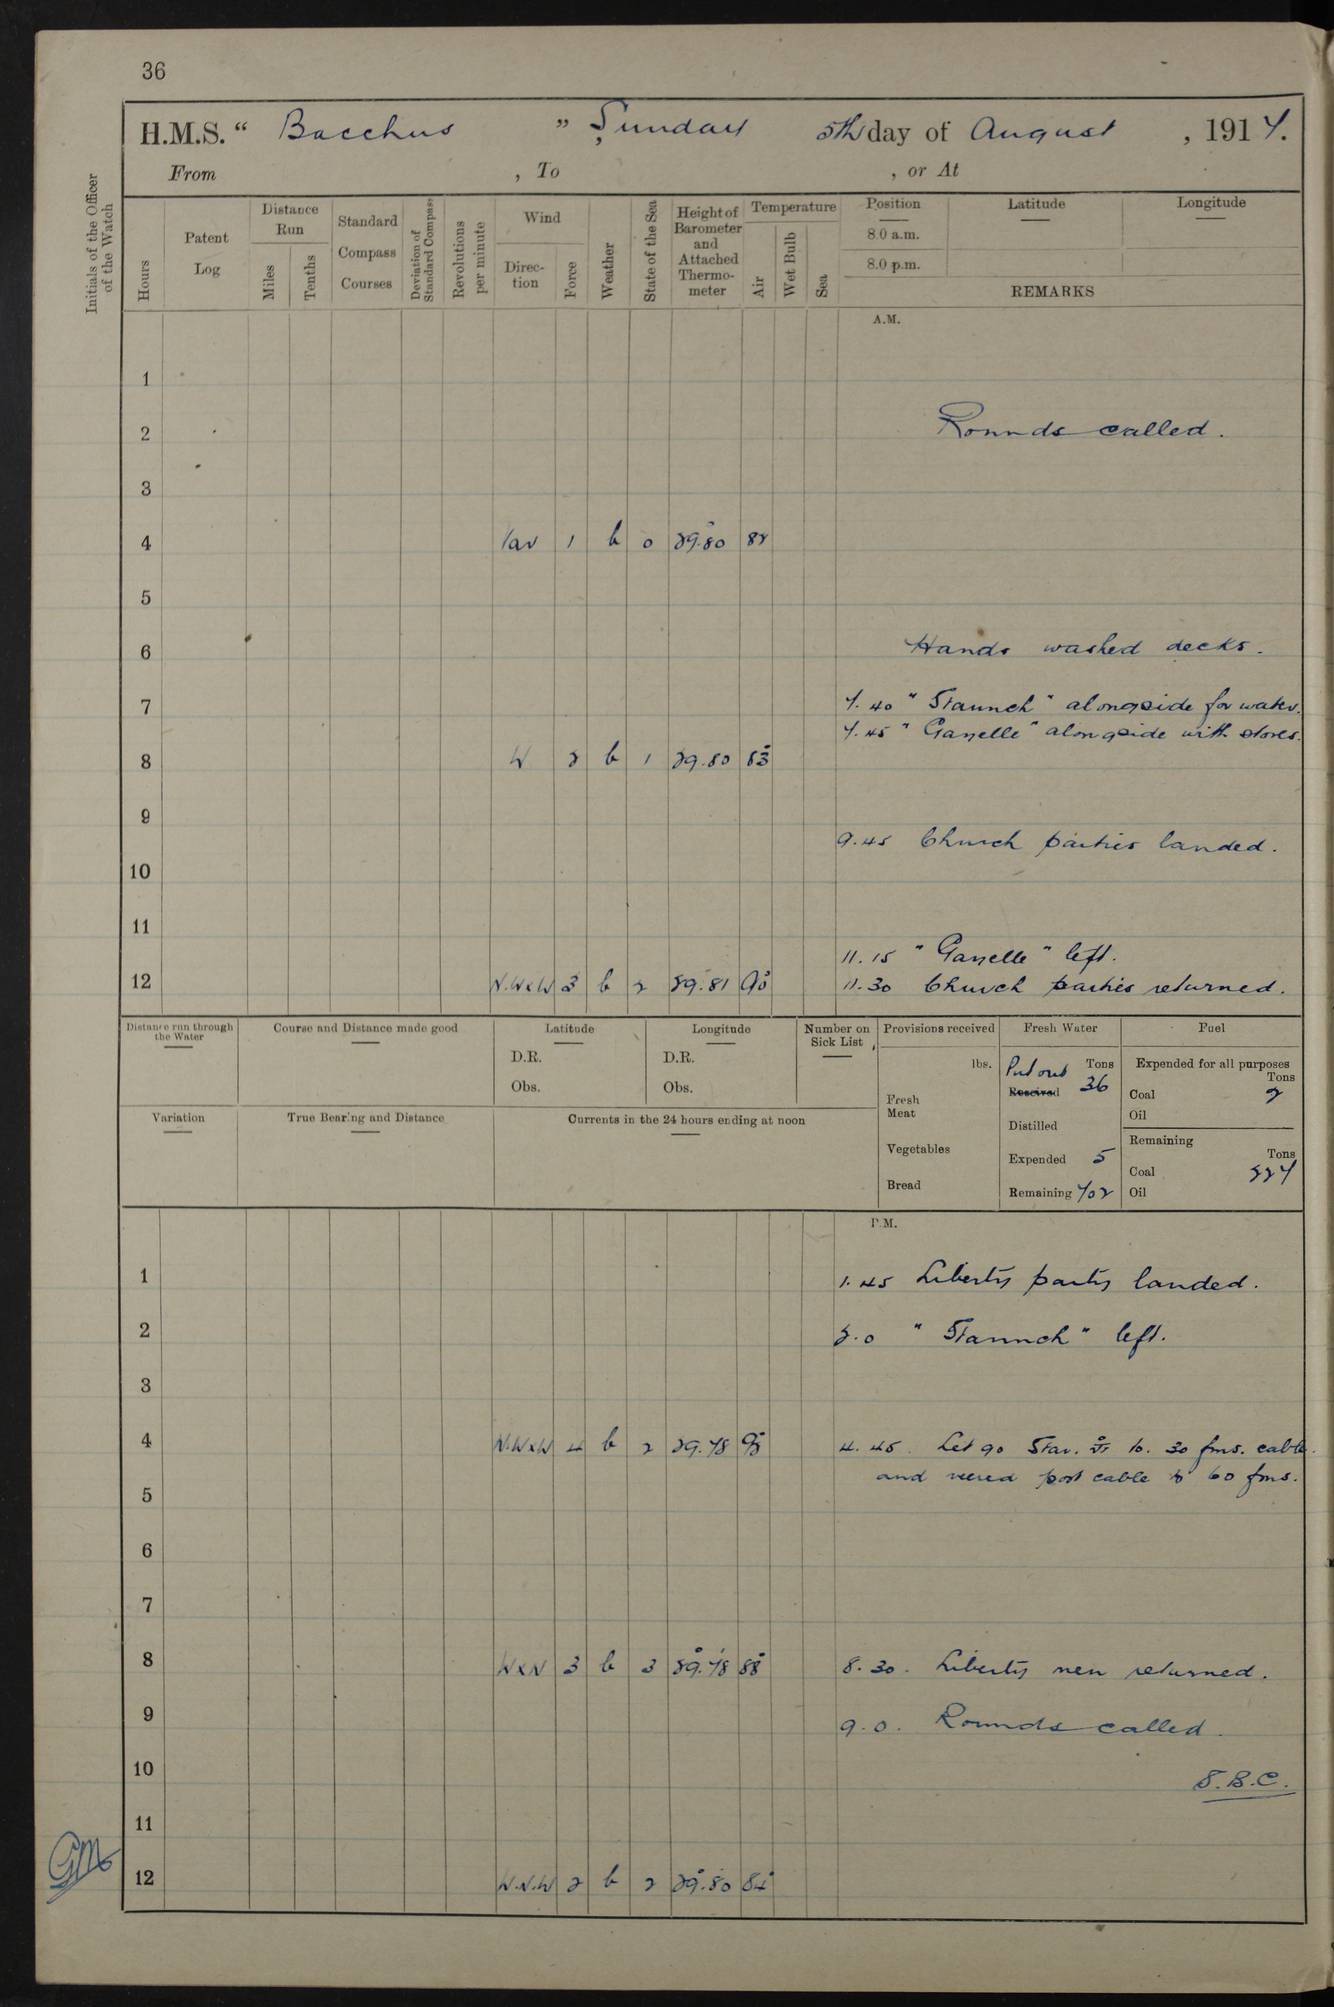 36
H.M.S. “ Bacchus ” , Sunday 5th day of August , 1917.
From , To , or At
Initials of the Officer of the Watch
Hours
Patent Log
Distance Run
Miles
Tenths
Standard Compass Courses
Deviation of Standard Compass
Revolutions per minute
Wind
Direction
Force
Weather
State of the Sea
Height of Barometer and Attached Thermometer
Temperature
Air
Wet Bulb
Sea
Position
8.0 a.m.
8.0 p.m.
Latitude
Longitude
REMARKS
A.M.
1
2 Rounds called.
3
4 Var 1 b 0 29.80 82
5
6 Hands washed decks.
7 7.40 " Staunch " alongside for water.
7.45 " Gazelle " alongside with stores.
8 W 2 b 1 29.80 83
9
9.45 Church parties landed.
10
11
11.15 " Gazelle " left.
12 N.WxW 3 b 2 29.81 90 11.30 Church parties returned.
Distance run through the Water
Course and Distance made good
Latitude
D.R.
Obs.
Longitude
D.R.
Obs.
Number on Sick List
Provisions received
lbs.
Fresh Meat
Vegetables
Bread
Fresh Water
Put out Tons
Received 36
Distilled
Expended 5
Remaining 702
Fuel
Expended for all purposes
Tons
Coal 2
Oil
Remaining
Tons
Coal 227
Oil
Variation
True Bearing and Distance
Currents in the 24 hours ending at noon
P.M.
1 1.45 Liberty party landed.
2 2.0 " Staunch " left.
3
4 N.WxW 4 b 2 29.78 4.45. Let go Star. to. 30 fms. cable.
and veered port cable to 60 fms.
5
6
7
8 WxN 3 b 3 29.78 88 8.30. Liberty men returned.
9 9.0. Rounds called.
10 S.B.C.
11
12 W.N.W 2 b 2 29.80 84
GM